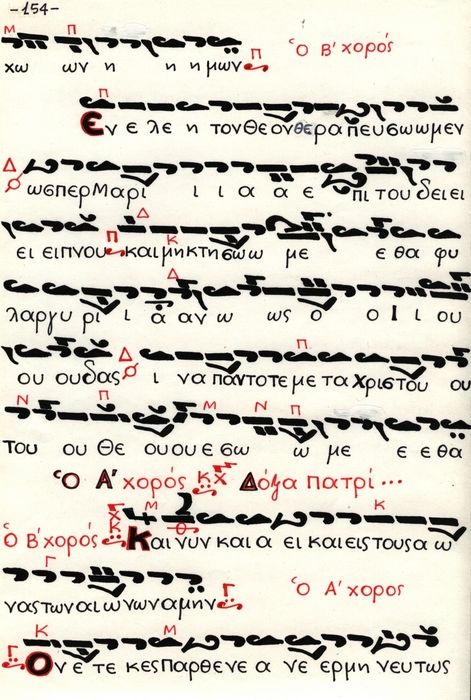 -154-
χω ων η η η μων Ὁ Β' χορός
Εν ε λε η τον θε ον θε ρα πευ σω ω μεν
ωσ περ Μα ρι ι ι α α ε πι του δει ει
ει ει πνου και μη κτη σω ω με ε θα φυ
λαρ γυ ρι ι α αν ω ως ο ο Ι ι ου
ου ου δας ι να παν το τε με τα Χρι στου ου
του ου Θε ου ου ε σω ω με ε ε θα
Ὁ Α' χορός Δόξα πατρί...
Ὁ Β' χορός Και νυν και α ει και εις τους α ω
νας των αι ω νων α μην Ὁ Α' χορος
Ον ε τε κες Παρ θε νε α νε ερ μη νευ τως